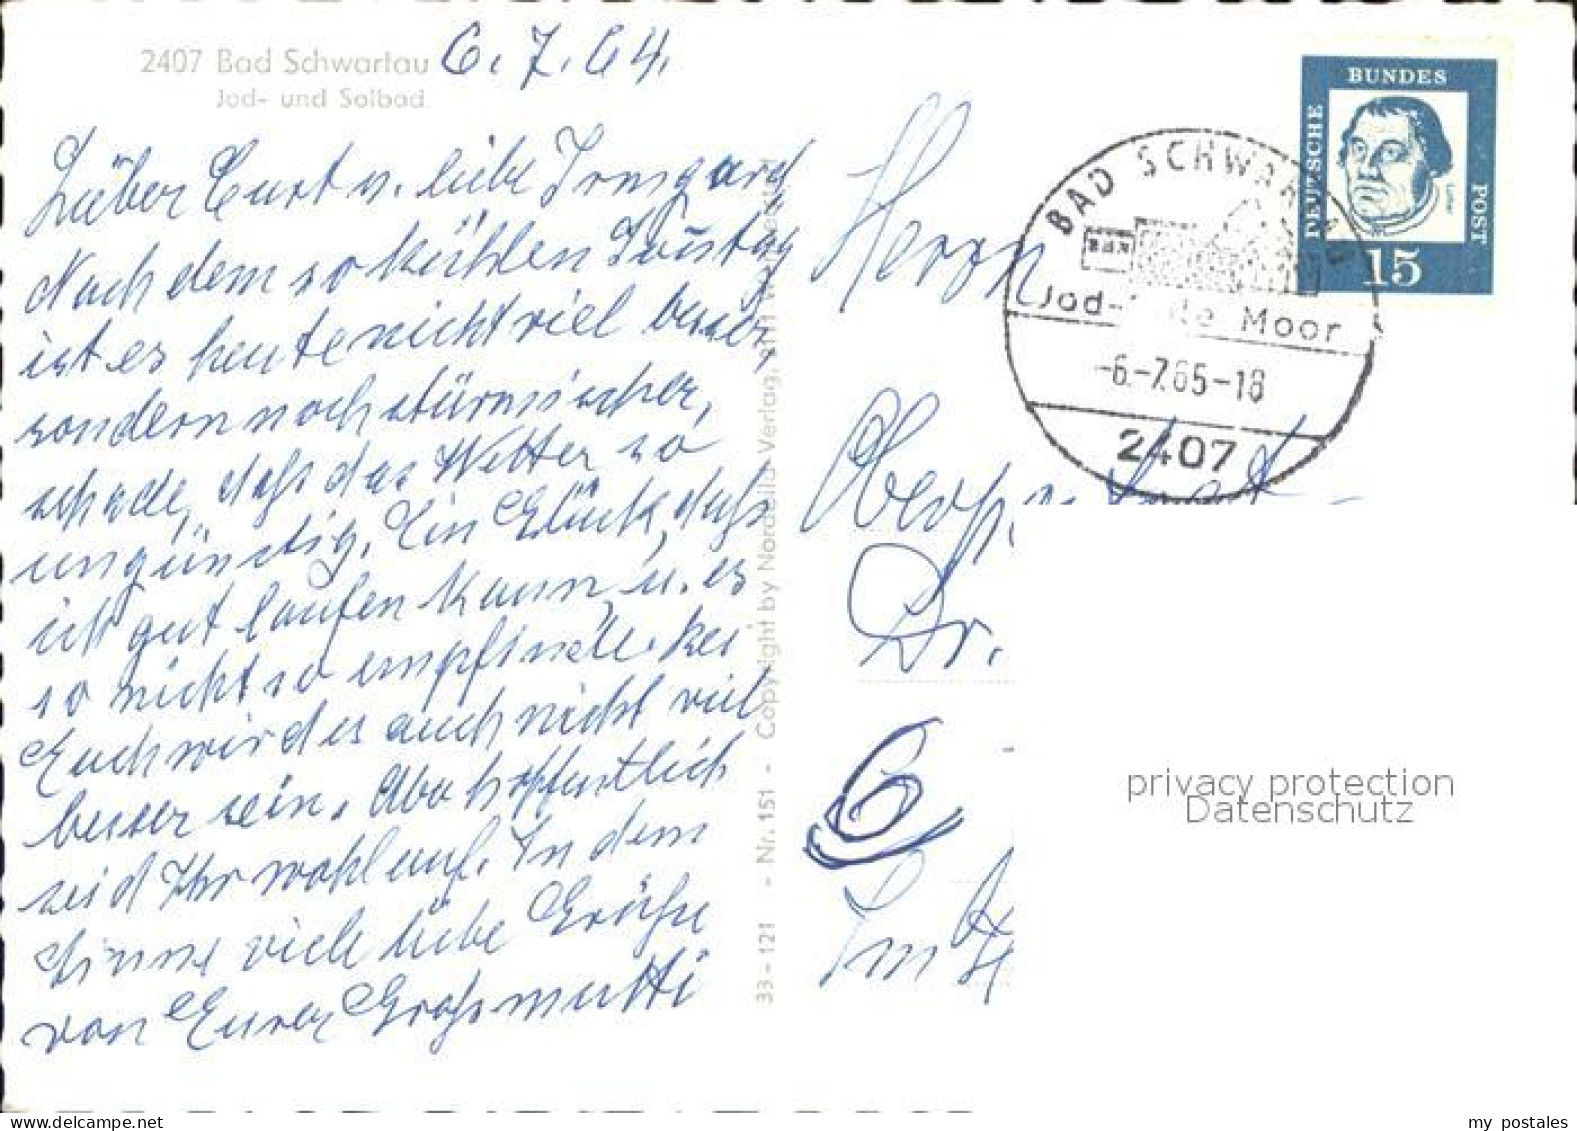 2407 Bad Schwartau
Jod- und Solbad
6.7.64.
Lieber Curt u. liebe Irmgard
Nach dem so kühlen Sonntag
ist es heute nicht viel besser,
sondern noch stürmischer,
schade, daß das Wetter so
ungünstig. Ein Glück, daß
ich gut laufen kann, u. es
so nicht so empfinde. bei
Euch wird es auch nicht viel
besser sein. Aber hoffentlich
seid Ihr wohlauf. In dem
Sinne viele liebe Grüße
von Eurer Großmutti
33-121 - Nr. 151 - Copyright by Nordella-Verlag,
Herrn
Dr.
6
BUNDES
DEUTSCHE
POST
Luther
15
BAD SCHWARTAU
Jod- Moor
-6.-7.65-18
2407
privacy protection
Datenschutz
my postales